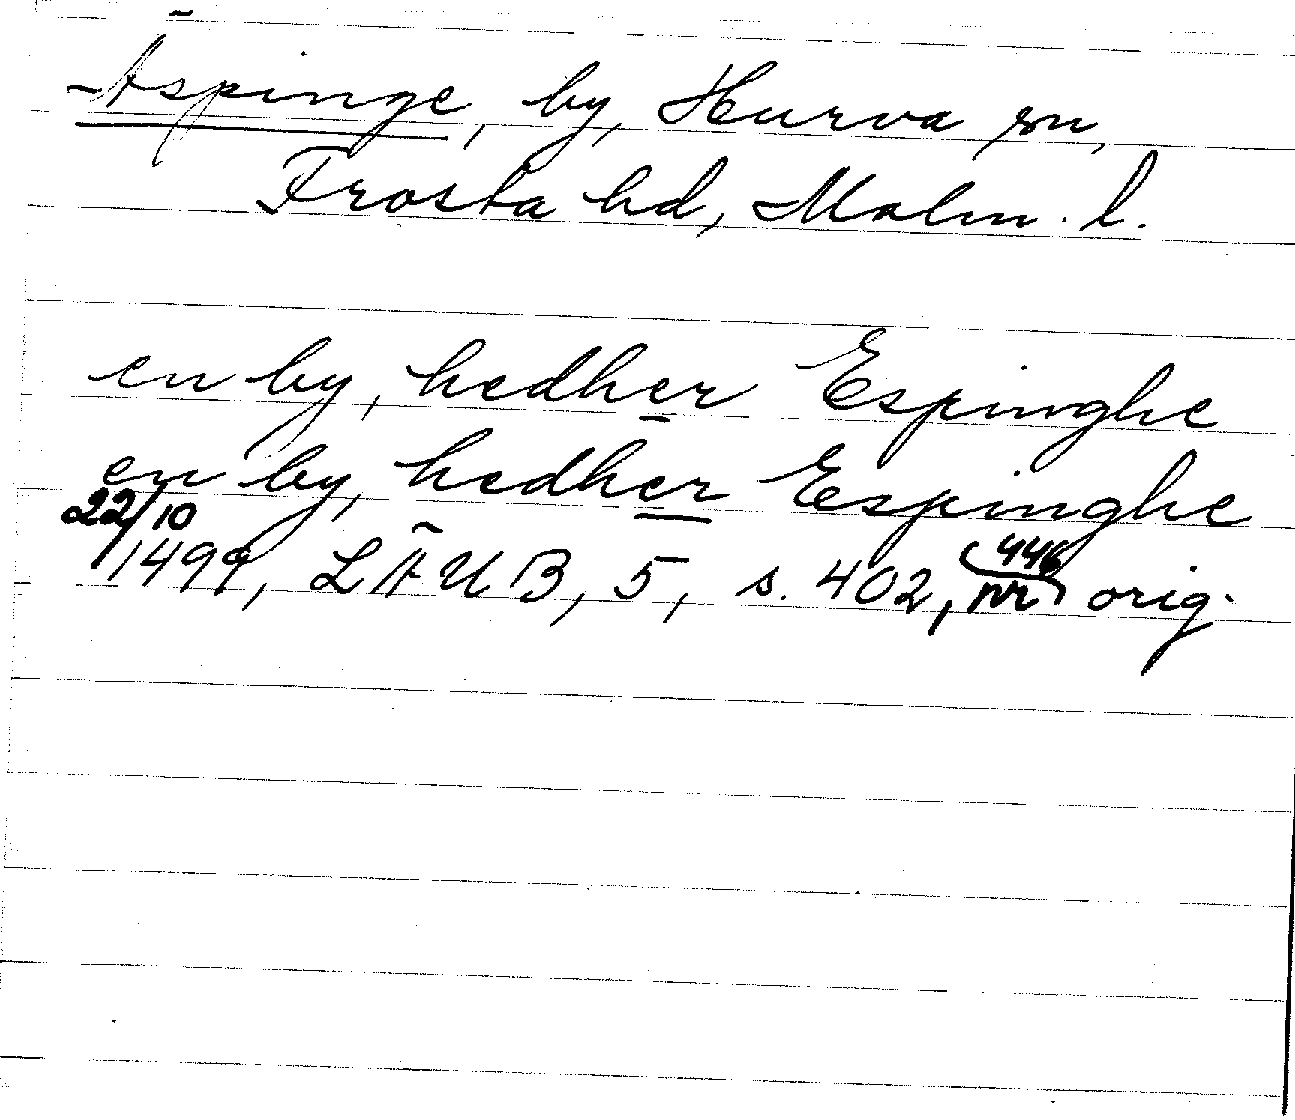 Äspinge, by, Hurva sn,
Frosta hd, Malm. l.
en by, hedher Espinghe
en by, hedher Espinghe
22/10
1499, LÄUB, 5, s. 402, nr 446 orig.